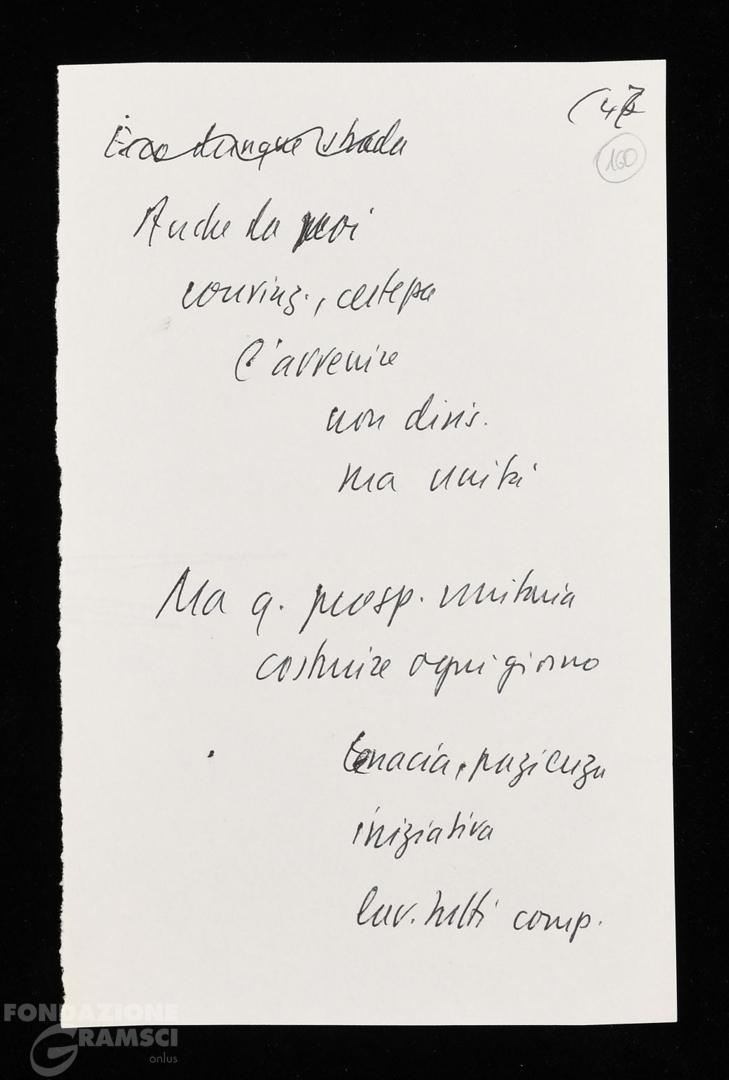 (47
160
Ecco dunque strada
Anche da noi
convinz., certezza
l'avvenire
non divis.
ma unità
Ma q. prosp. unitaria
costruire ogni giorno
tenacia, pazienza
iniziativa
lav. tutti comp.
FONDAZIONE
GRAMSCI
onlus